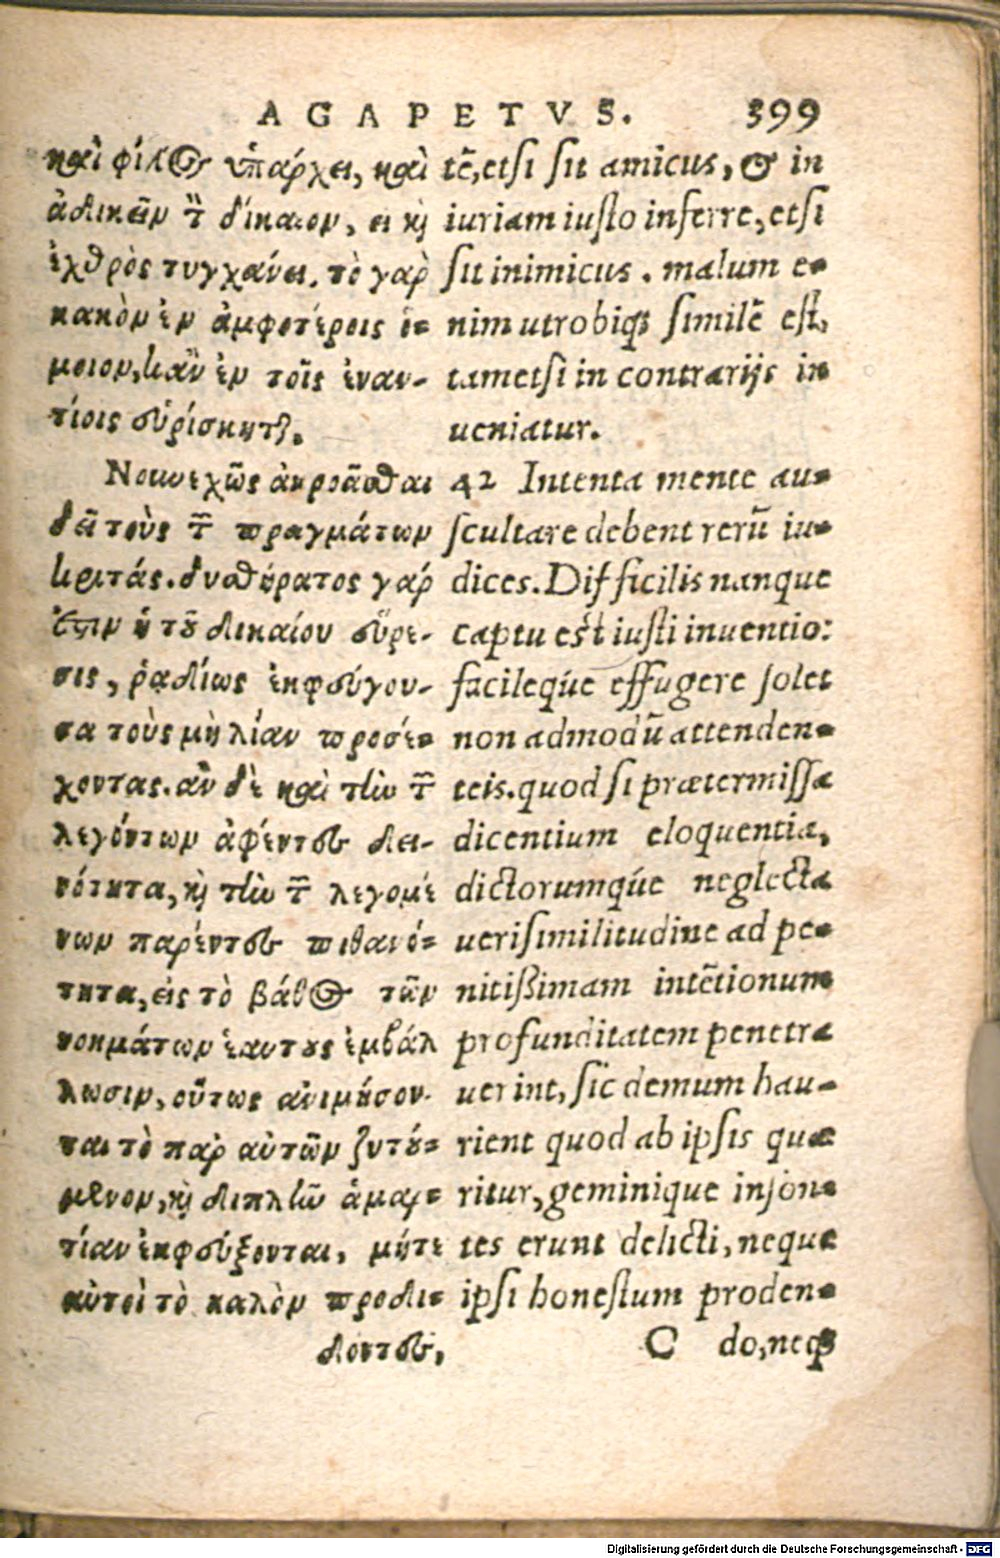 AGAPETVS. 399
καὶ φίλος ὑπάρχει, καὶ
ἀδικεῖν τὸν δίκαιον, εἰ καὶ
ἐχθρὸς τυγχάνει. τὸ γὰρ
κακὸν ἐν ἀμφοτέροις ὅ-
μοιον, κἂν ἐν τοῖς ἐναν-
τίοις εὑρίσκηται.
Νουνεχῶς ἀκροᾶσθαι
δεῖ τοὺς τῶν πραγμάτων
κριτάς. δυσθήρατος γάρ
ἐστιν ἡ τοῦ δικαίου εὕρε-
σις, ῥᾳδίως ἐκφεύγου-
σα τοὺς μὴ λίαν προσέ-
χοντας. ἂν δὲ καὶ τὴν τῶν
λεγόντων ἀφέντες δει-
νότητα, καὶ τὴν τῶν λεγομέ
νων παρέντες πιθανό-
τητα, εἰς τὸ βάθος τῶν
νοημάτων ἑαυτοὺς ἐμβάλ
λωσιν, οὕτως ἀνιμήσον-
ται τὸ παρ αὐτῶν ζητού-
μενον, καὶ διπλὴν ἁμαρ-
τίαν ἐκφεύξονται, μήτε
αὐτοὶ τὸ καλὸν προδι-
δόντες,
tē, etsi sit amicus, & in
iuriam iusto inferre, etsi
sit inimicus. malum e-
nim utrobiq; similē est,
tametsi in contrarijs in
ueniatur.
42 Intenta mente au-
scultare debent rerū iu-
dices. Difficilis nanque
captu est iusti inuentio:
facileq́ue effugere solet
non admodū attenden-
teis. quod si prætermissa
dicentium eloquentia,
dictorumq́ue neglecta
uerisimilitudine ad pe-
nitißimam intētionum
profunditatem penetra
uerint, sic demum hau-
rient quod ab ipsis quæ
ritur, geminique inson-
tes erunt delicti, neque
ipsi honestum proden-
C do, neq;
Digitalisierung gefördert durch die Deutsche Forschungsgemeinschaft - DFG